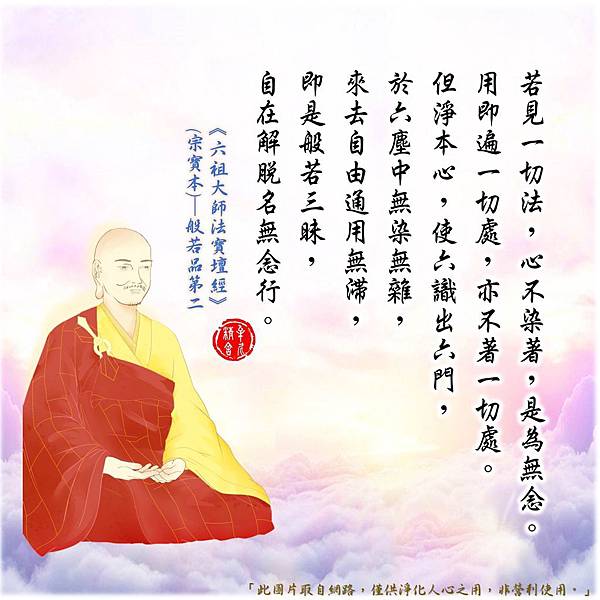 若見一切法，心不染著，是為無念。
用即遍一切處，亦不著一切處。
但淨本心，使六識出六門，
於六塵中無染無雜，
來去自由通用無滯，
即是般若三昧，
自在解脫名無念行。
《六祖大師法寶壇經》
(宗寶本)—般若品第二
「此圖片取自網路，僅供淨化人心之用，非營利使用。」